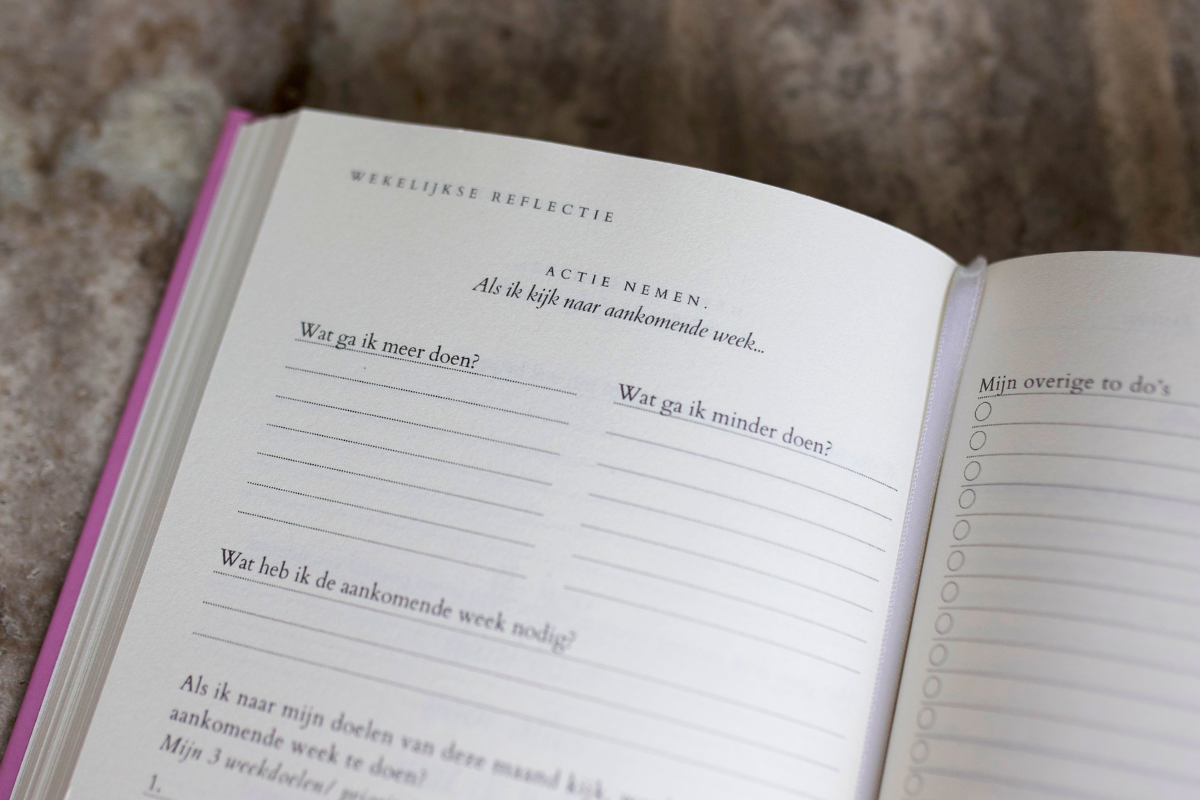 WEKELIJKSE REFLECTIE
ACTIE NEMEN.
Als ik kijk naar aankomende week...
Wat ga ik meer doen?
Wat ga ik minder doen?
Wat heb ik de aankomende week nodig?
Als ik naar mijn doelen van deze maand kijk,
aankomende week te doen?
Mijn 3 weekdoelen/
1.
Mijn overige to do's